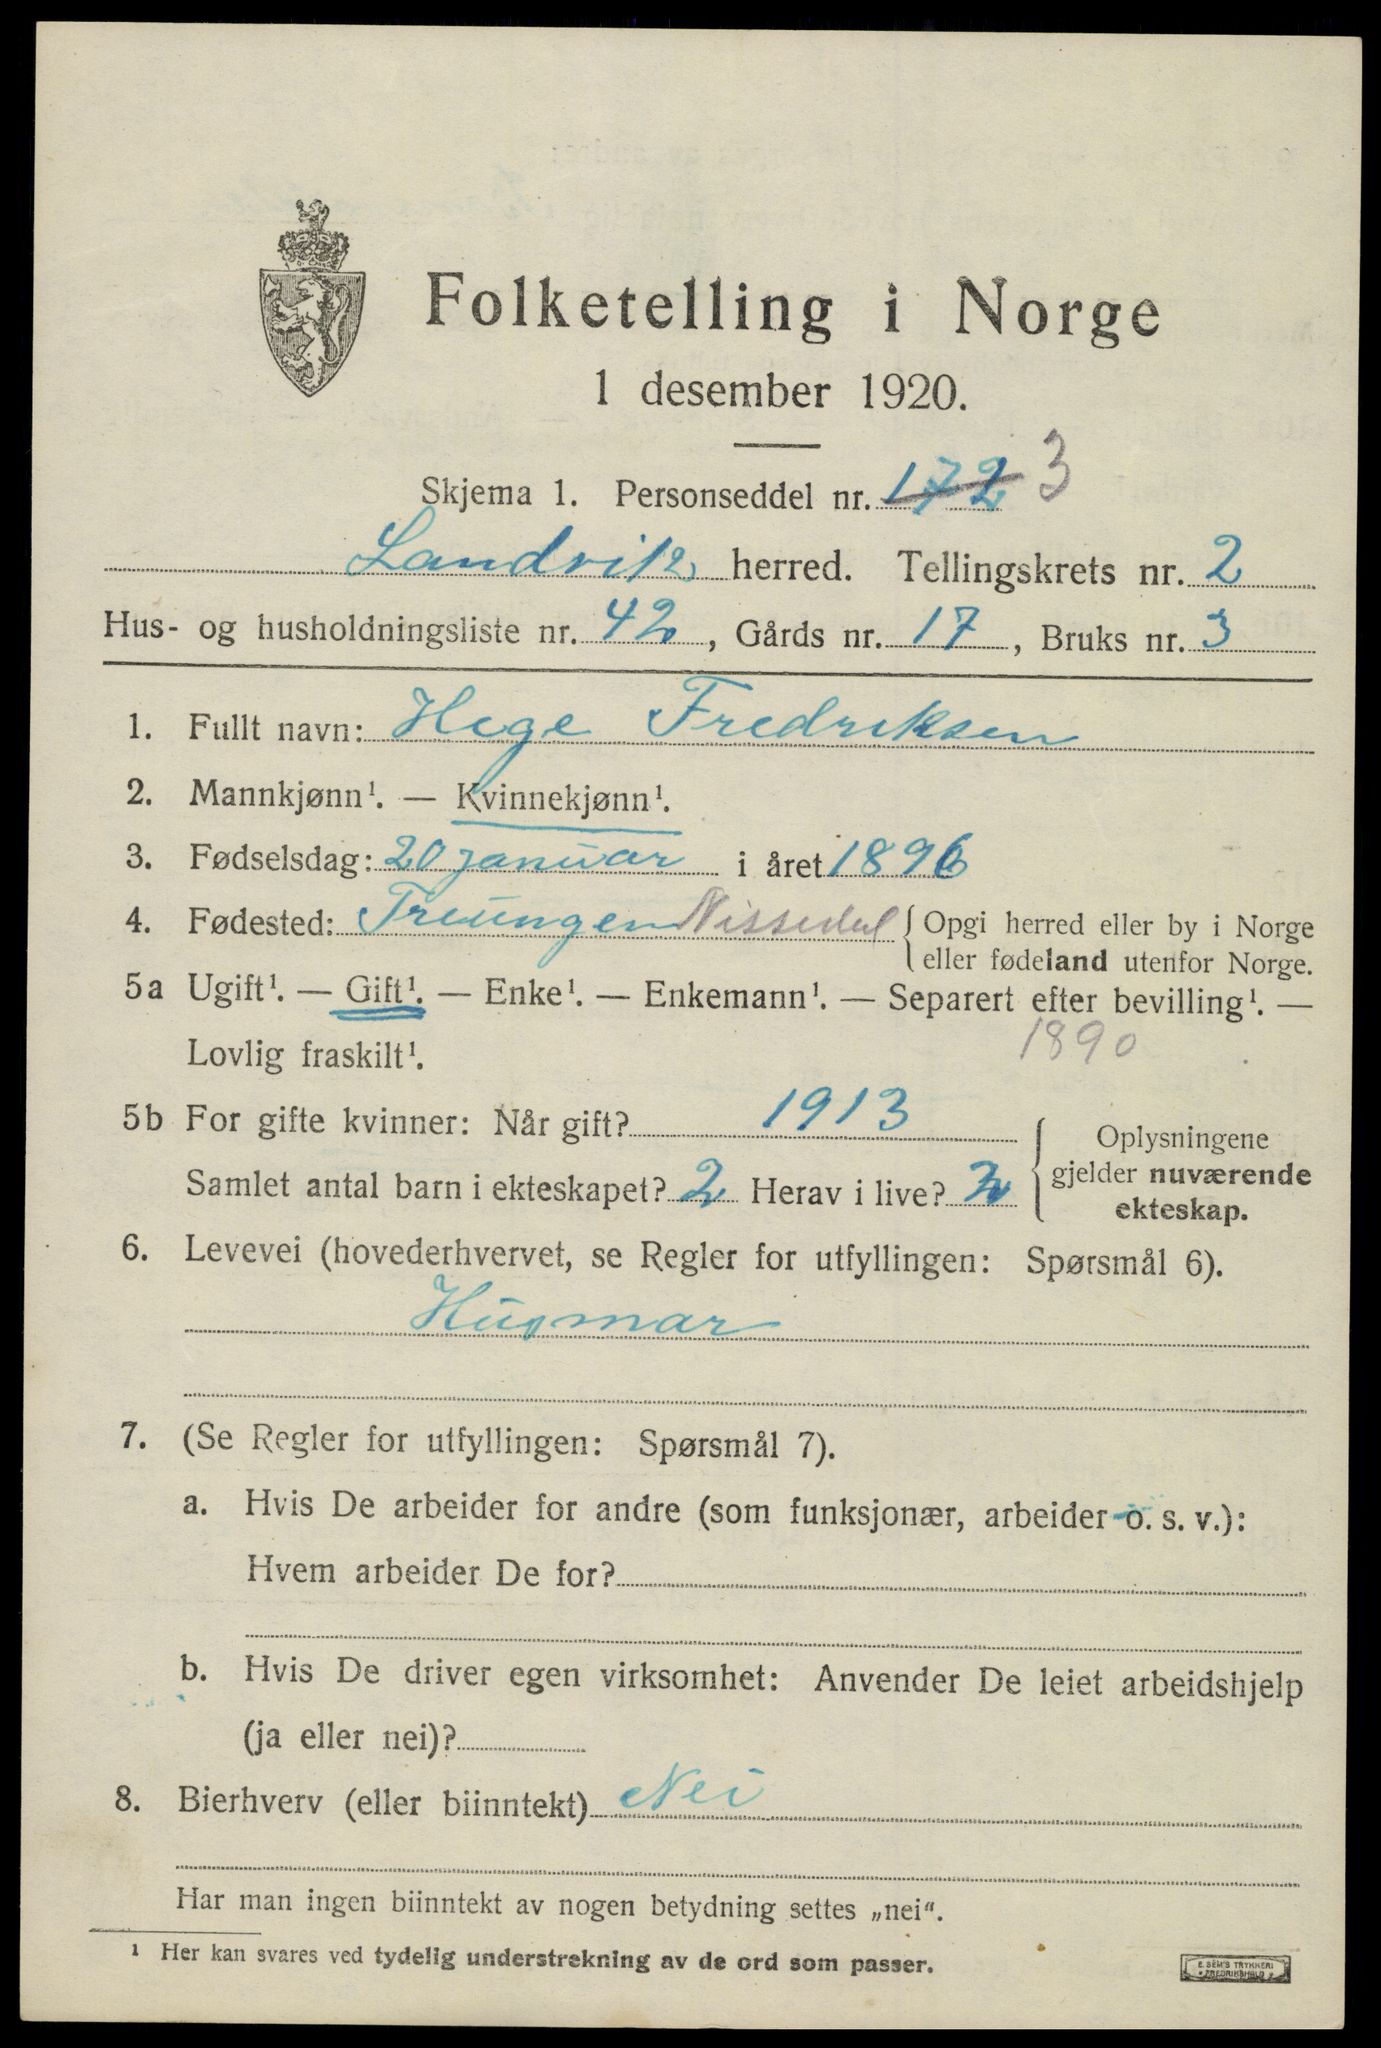 Folketelling i Norge
1 desember 1920.
Skjema 1. Personseddel nr. 172 3
Landvik herred. Tellingskrets nr. 2
Hus- og husholdningsliste nr. 42, Gårds nr. 17, Bruks nr. 3
1. Fullt navn: Hege Fredriksen
2. Mannkjønn¹. — Kvinnekjønn¹.
3. Fødselsdag: 20 januar i året 1896
4. Fødested: Treungen Nissedal { Opgi herred eller by i Norge
eller fødeland utenfor Norge.
5a Ugift¹. — Gift¹. — Enke¹. — Enkemann¹. — Separert efter bevilling¹. —
Lovlig fraskilt¹. 1890
5b For gifte kvinner: Når gift? 1913
Samlet antal barn i ekteskapet? 2 Herav i live? 2
Oplysningene
gjelder nuværende
ekteskap.
6. Levevei (hovederhvervet, se Regler for utfyllingen: Spørsmål 6).
Husmar
7. (Se Regler for utfyllingen: Spørsmål 7).
a. Hvis De arbeider for andre (som funksjonær, arbeider o. s. v.):
Hvem arbeider De for?
b. Hvis De driver egen virksomhet: Anvender De leiet arbeidshjelp
(ja eller nei)?
8. Bierhverv (eller biinntekt) Nei
Har man ingen biinntekt av nogen betydning settes „nei“.
¹ Her kan svares ved tydelig understrekning av de ord som passer.
E. SEM'S TRYKKERI
FREDRIKSHALD